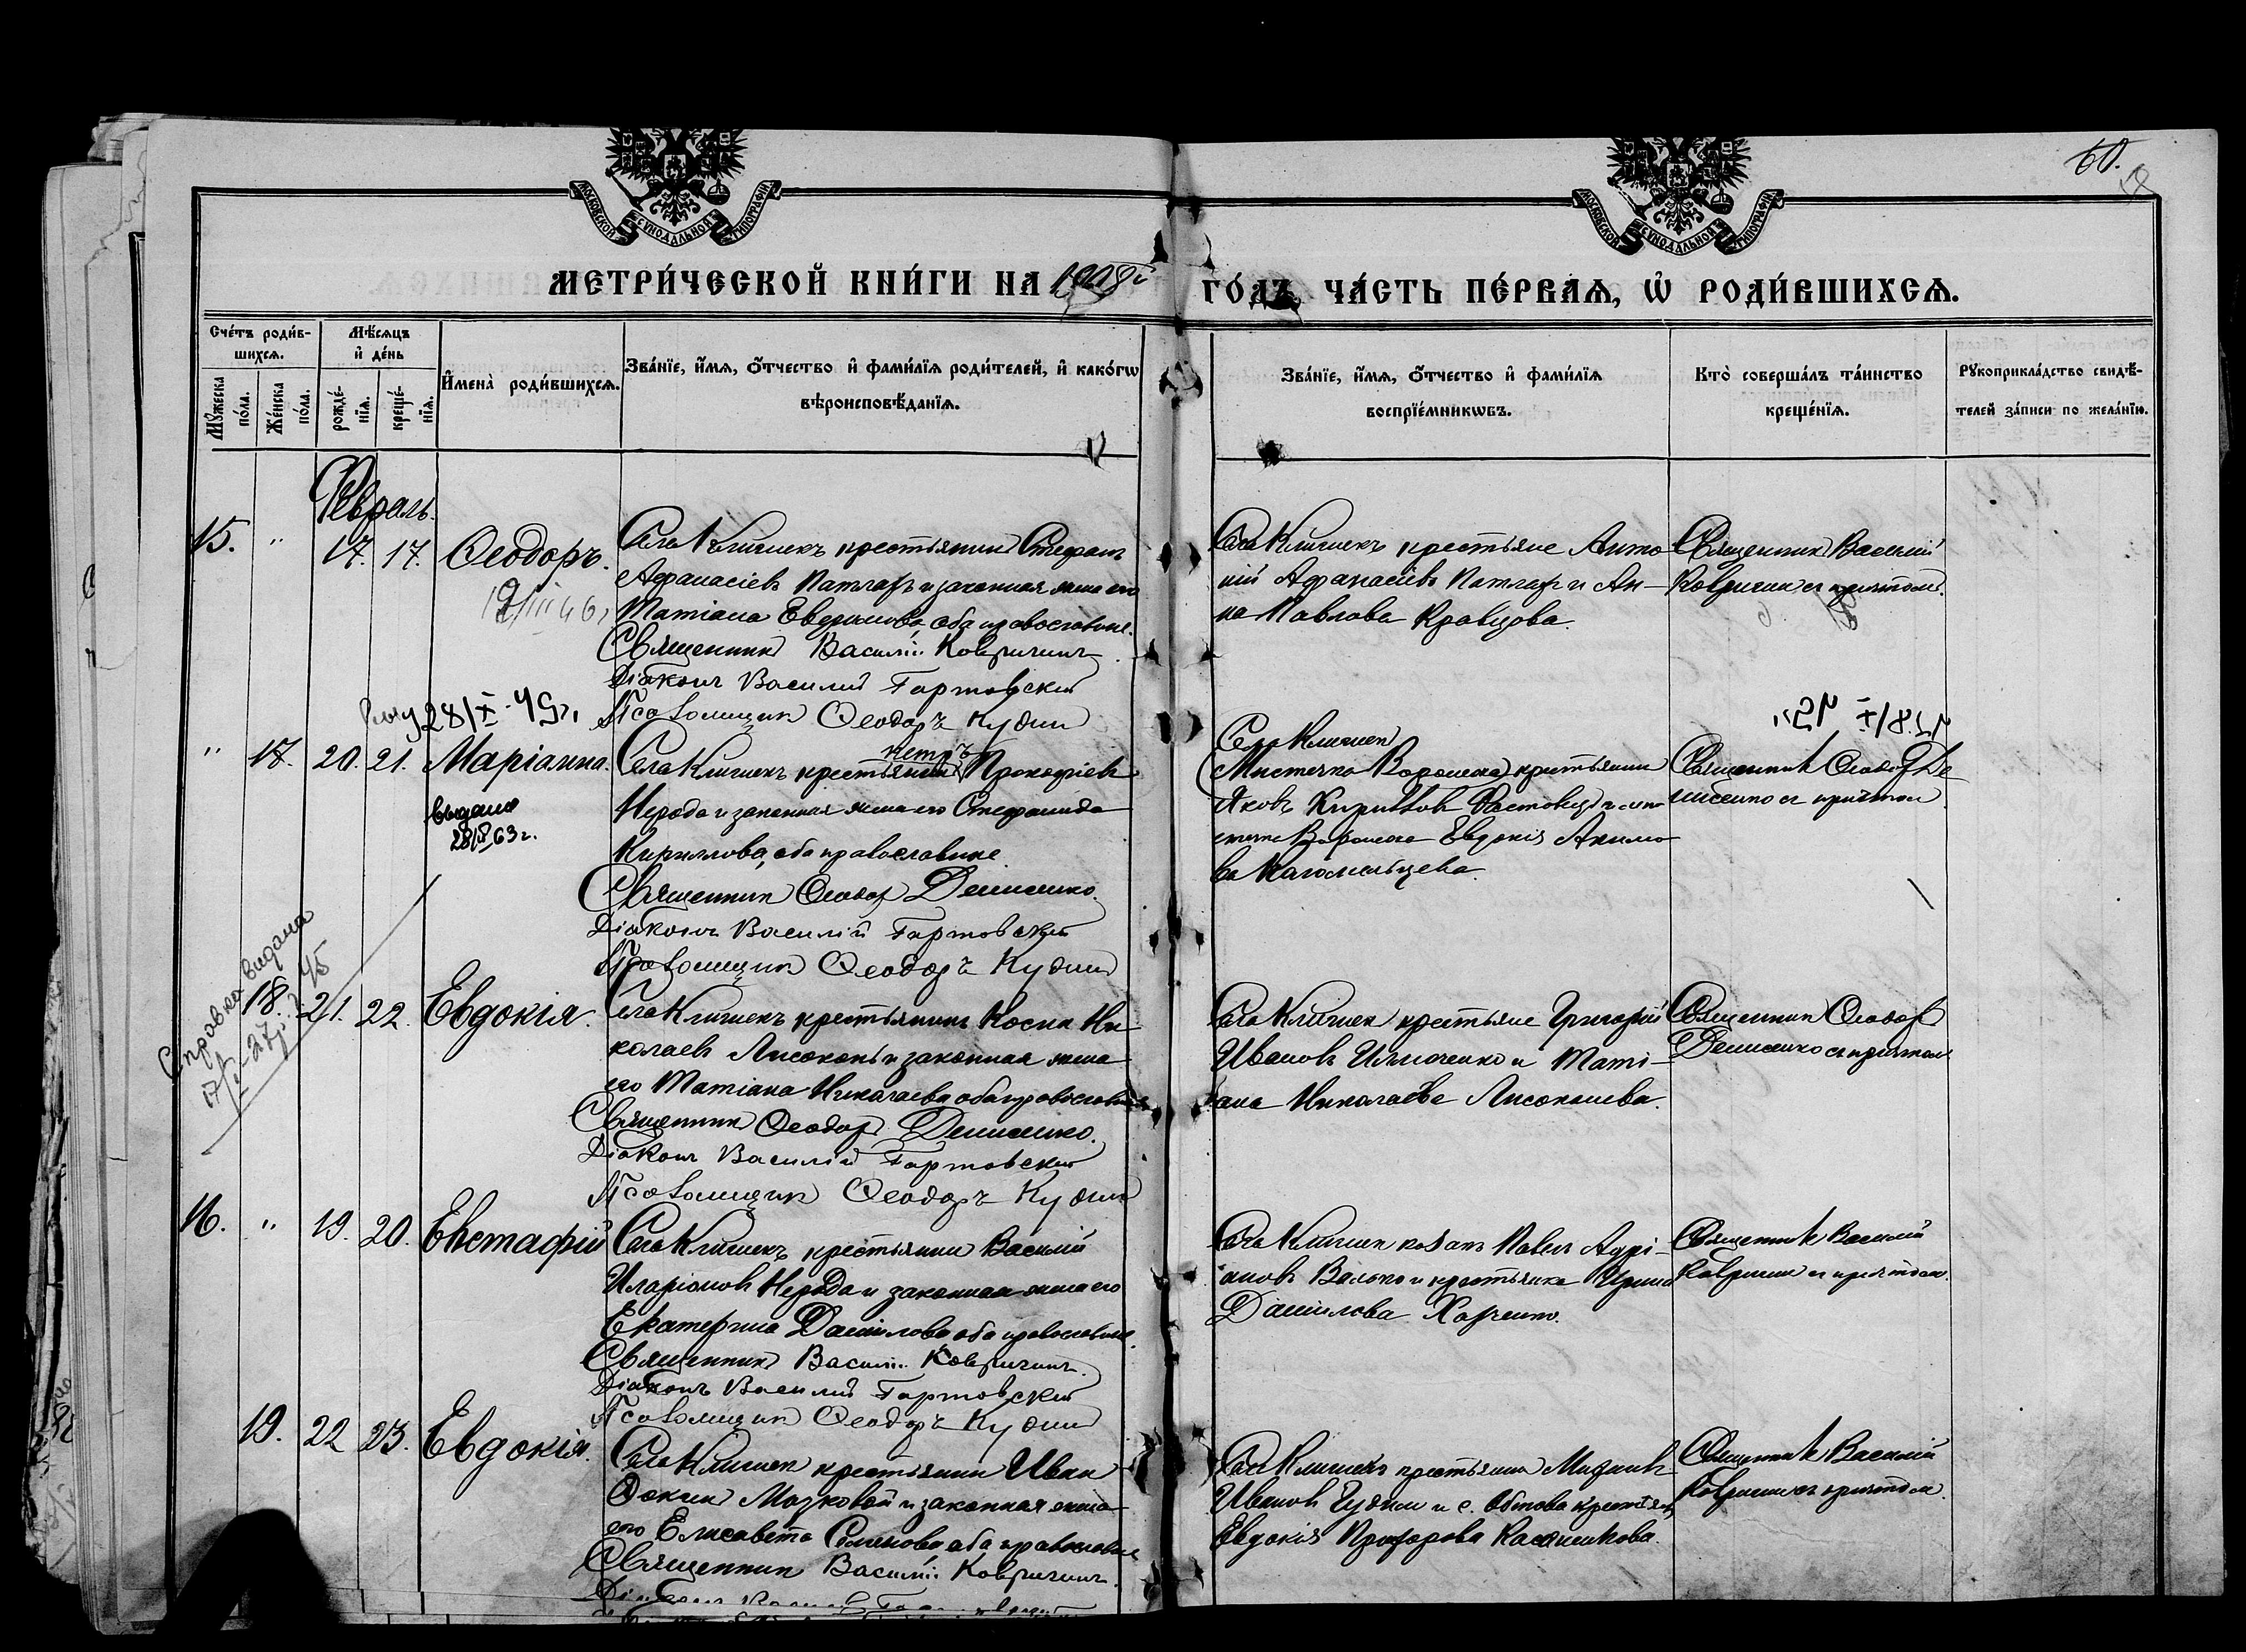 60.
МОСКОВСКОЙ СѴНОДАЛЬНОЙ ТИПОГРАФІИ
МОСКОВСКОЙ СѴНОДАЛЬНОЙ ТИПОГРАФІИ
МЕТРИ́ЧЕСКОЙ КНИ́ГИ НА
ГО́ДЪ, ЧА́СТЬ ПЕ́РВАѦ, Ѡ҆ РОДИ́ВШИХСѦ.
Сче́тъ роди́в-
шихсѧ.
Мѣ́сѧцъ
и҆ де́нь
Мꙋ́жеска
по́ла.
Же́нска
по́ла.
рожде́-
нїѧ.
креще́-
нїѧ.
И҆мена̀ роди́вшихсѧ.
Зва́нїе, и҆́мѧ, ѻ҆́тчество и҆ фами́лїѧ роди́телей, и҆ како́гѡ
вѣроисповѣ́данїѧ.
Зва́нїе, и҆́мѧ, ѻ҆́тчество и҆ фами́лїѧ
воспрїе́мникѡвъ.
Кто̀ соверша́лъ та́инство
креще́нїѧ.
Рꙋкоприкла́дство свидѣ́-
телей за́писи по жела́нїю.
Февраль.
15. " 17. 17. Ѳеодоръ.
Села Клишекъ крестьянин Стефан
Афанасіевъ Патлах и законная жена его
Татіана Евфимова, оба православные.
Священник Василій Ковригин
Діаконъ Василий Гартовский
Псаломщик Ѳеодоръ Кудин
Села Клишекъ крестьяне Анто-
ній Афанасіевъ Патлах и Ан-
на Павлова Кравцова.
Священник Василій
Ковригин съ причтом.
28/X-45г.
" 17. 20. 21. Маріанна.
выдана
63г.
Петръ
Села Клишекъ крестьянин Прокофіевъ
Нерода и законная жена его Стефанида
Кириллова, оба православные.
Священник Ѳеодор Денисенко.
Діаконъ Василій Гартовский
Псаломщик Ѳеодоръ Кудин
Села Клишек
(Местечка Воронежа) крестьянин
Яковъ Кириллов
Воронежа Евдокія Акимо-
ва
Священник Ѳеодор Де-
нисенко съ причтом
Справка видана
45
18. 21. 22. Евдокія.
Села Клишекъ крестьянинъ Косма Ни-
колаевъ Лисоконь и законная жена
его Татіана Николаева оба православные
Священник Ѳеодор Денисенко.
Діаконъ Василій Гартовский
Псаломщик Ѳеодоръ Кудин
Села Клишек крестьяне Григорій
Ивановъ Ильюченко и Таті-
ана Николаева Лисоконева.
Священник Ѳеодор
Денисенко съ причтом
16. " 19. 20. Евстафій
Села Клишекъ крестьянин Василій
Иларіонов Нерода и законная жена его
Екатерина Даниилова оба православные.
Священник Василій Ковригин.
Діаконъ Василий Гартовский
Псаломщик Ѳеодоръ Кудин
Села Клишек козакъ Павел Адрі-
ановъ Валько и крестьянка Ирина
Даниилова Харченко.
Священник Василій
Ковригин съ причтом.
19. 22 23. Евдокія.
Села Клишек крестьянин Иван
Фокин Мазковой и законная жена
его Елисавета Семенова оба православные
Священник Василій Ковригин.
Села Клишекъ крестьянин Михаил
Иванов Гудим и с. Обтова крестьян.
Евдокія Прохорова Касьянкова.
Священник Василій
Ковригин съ причтом.